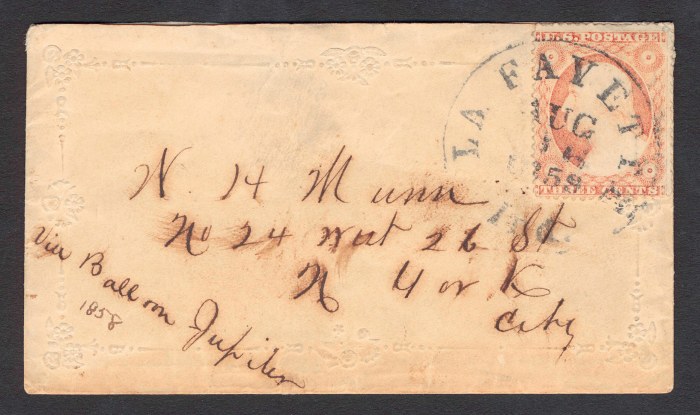 U.S. POSTAGE
THREE CENTS
LA FAYETTE
AUG
Ind.
N. H Munn
No 24 West 26 St
N York
City
Via Balloon Jupiter
1858